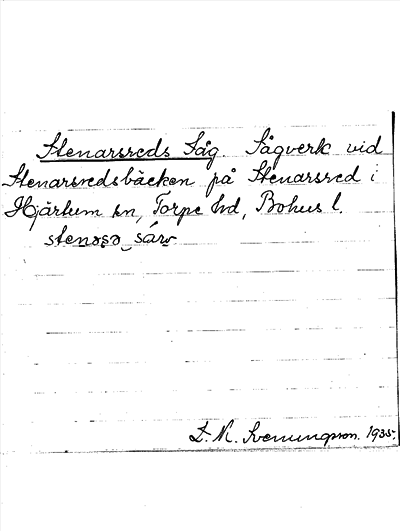 Stenarsreds Såg. Sågverk vid
Stenarsredsbäcken på Stenarsred i
Hjärtum sn, Torpe hd, Bohus l.
L. M. Svenungsson. 1935.